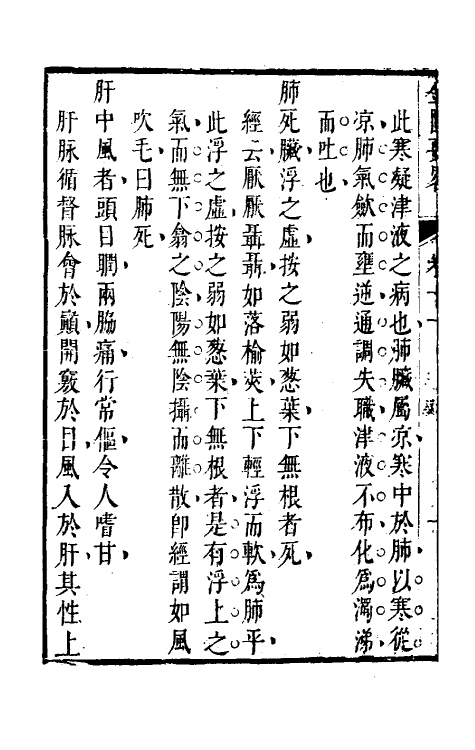 此寒疑津液之病也肺臟屬凉寒中於肺以寒從
凉肺氣歛而壅逆通調失職津液不布化為濁涕
而吐也
肺死臟浮之虛按之弱如葱葉下無根者死
經云厭厭聶聶如落榆莢上下輕浮而軟為肺平
此浮之虛按之弱如葱葉下無根者是有浮上之
氣而無下翕之陰陽無陰攝而離散卽經謂如風
吹毛曰肺死
肝中風者頭目瞤兩脇痛行常傴令人嗜甘
肝脉循督脉會於巔開竅於目風入於肝其性上